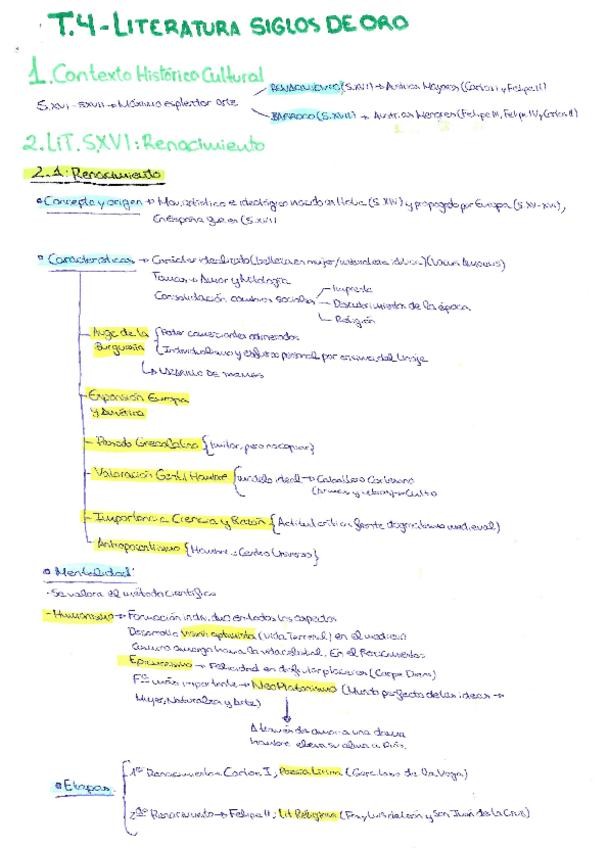 T.4-LITERATURA SIGLOS DE ORO
1. Contexto Histórico Cultural
S.XVI-XVII → Máximo esplendor arte
RENACIMIENTO (S.XVI) → Austrias Mayores (Carlos I y Felipe II)
BARROCO (S.XVII) → Austrias Menores (Felipe III, Felipe IV y Carlos II)
2. LIT. S.XVI: Renacimiento
2.1: Renacimiento
Concepto y origen → Mov. artístico e ideológico nacido en Italia (S.XIV) y propagado por Europa (S.XV-XVI),
En España
Características → Carácter idealizado (belleza en mujer/naturaleza (Locus Amoenus)
Temas → Amor y Mitología
Consolidación cambios sociales
Imprenta
Descubrimientos de la época
Religión
Auge de la Burguesía
Poder comerciantes adinerados
Individualismo y esfuerzo personal por encima del linaje
LAZARILLO DE TORMES
Expansión Europa
y América
Pasado Grecolatino {Imitar, pero no copiar}
Valoración Gentil Hombre {modelo ideal → Caballero Cortesano
(Armas y letras) → Culto
Importancia Ciencia y Razón {Actitud crítica frente dogmatismo medieval}
Antropocentrismo {Hombre: Centro Universo}
Mentalidad:
· Se valora el método científico
- Humanismo → Formación individuo en todos los aspectos
Desarrollo visión optimista (Vida Terrenal) en el medievo
camino amargo hacia la vida celestial. En el Renacimiento
Epicureísmo → Felicidad en disfrutar placeres (Carpe Diem)
más importante → NeoPlatonismo (Mundo perfecto de las ideas →
Mujer, Naturaleza y Arte)
A través de amar a una dama
hombre eleva su alma a Dios.
Etapas
1º Renacimiento → Carlos I, Poesía Lírica (Garcilaso de la Vega)
2º Renacimiento → Felipe II, Lit Religiosa (Fray Luis de León y San Juan de la Cruz)